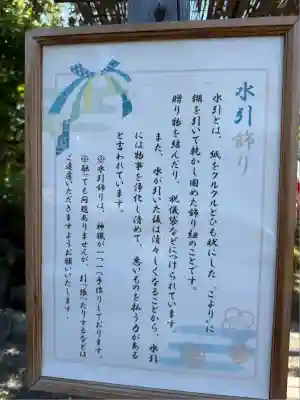 水引飾り
水引とは、紙をクルクルとひも状にした、“こより”に
糊を引いて乾かし固めた飾り紐のことです。
贈り物を結んだり、祝儀袋などにつけられています。
また、水が引いた後は清々しくなることから、水引
には物事を浄化し清めて、悪いものを払う力がある
と言われています。
※水引飾りは、神職が一つ一つ手作りしております。
※触っても問題ありませんが、引っ張ったりするなどは
ご遠慮いただきますようお願いいたします。